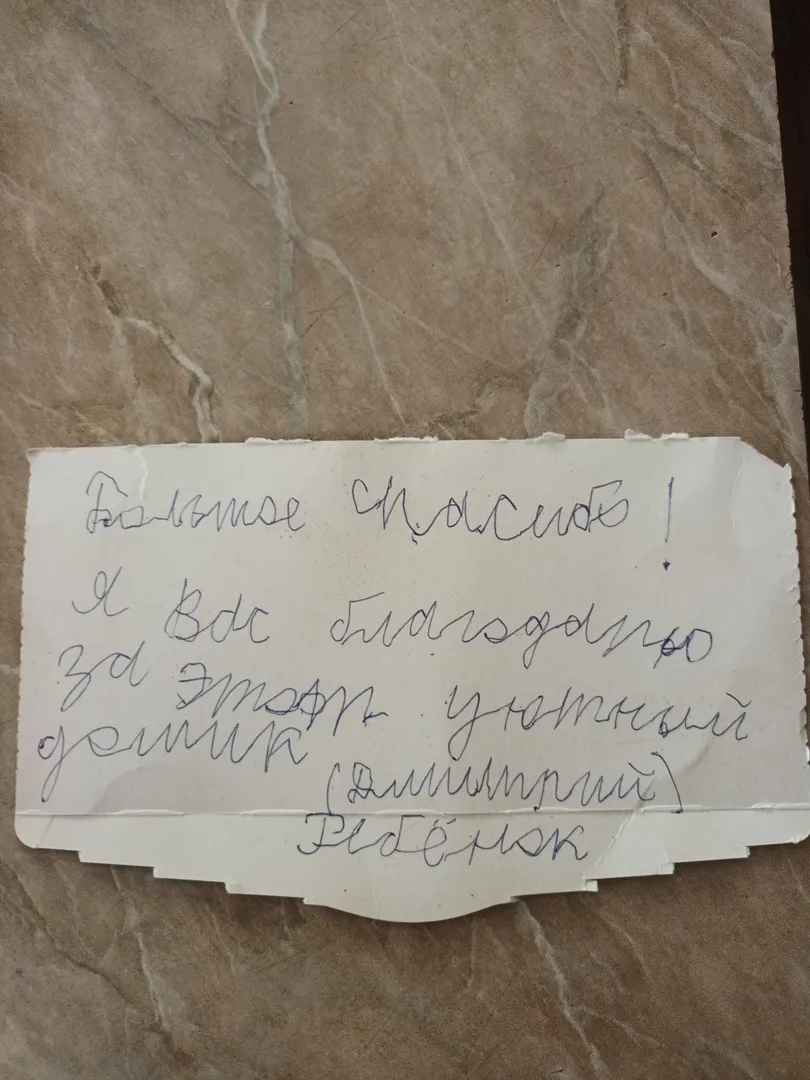 Большое спасибо!
Я Вас благодарю
за этот уютный
домик
(Димитрий)
Ребёнок